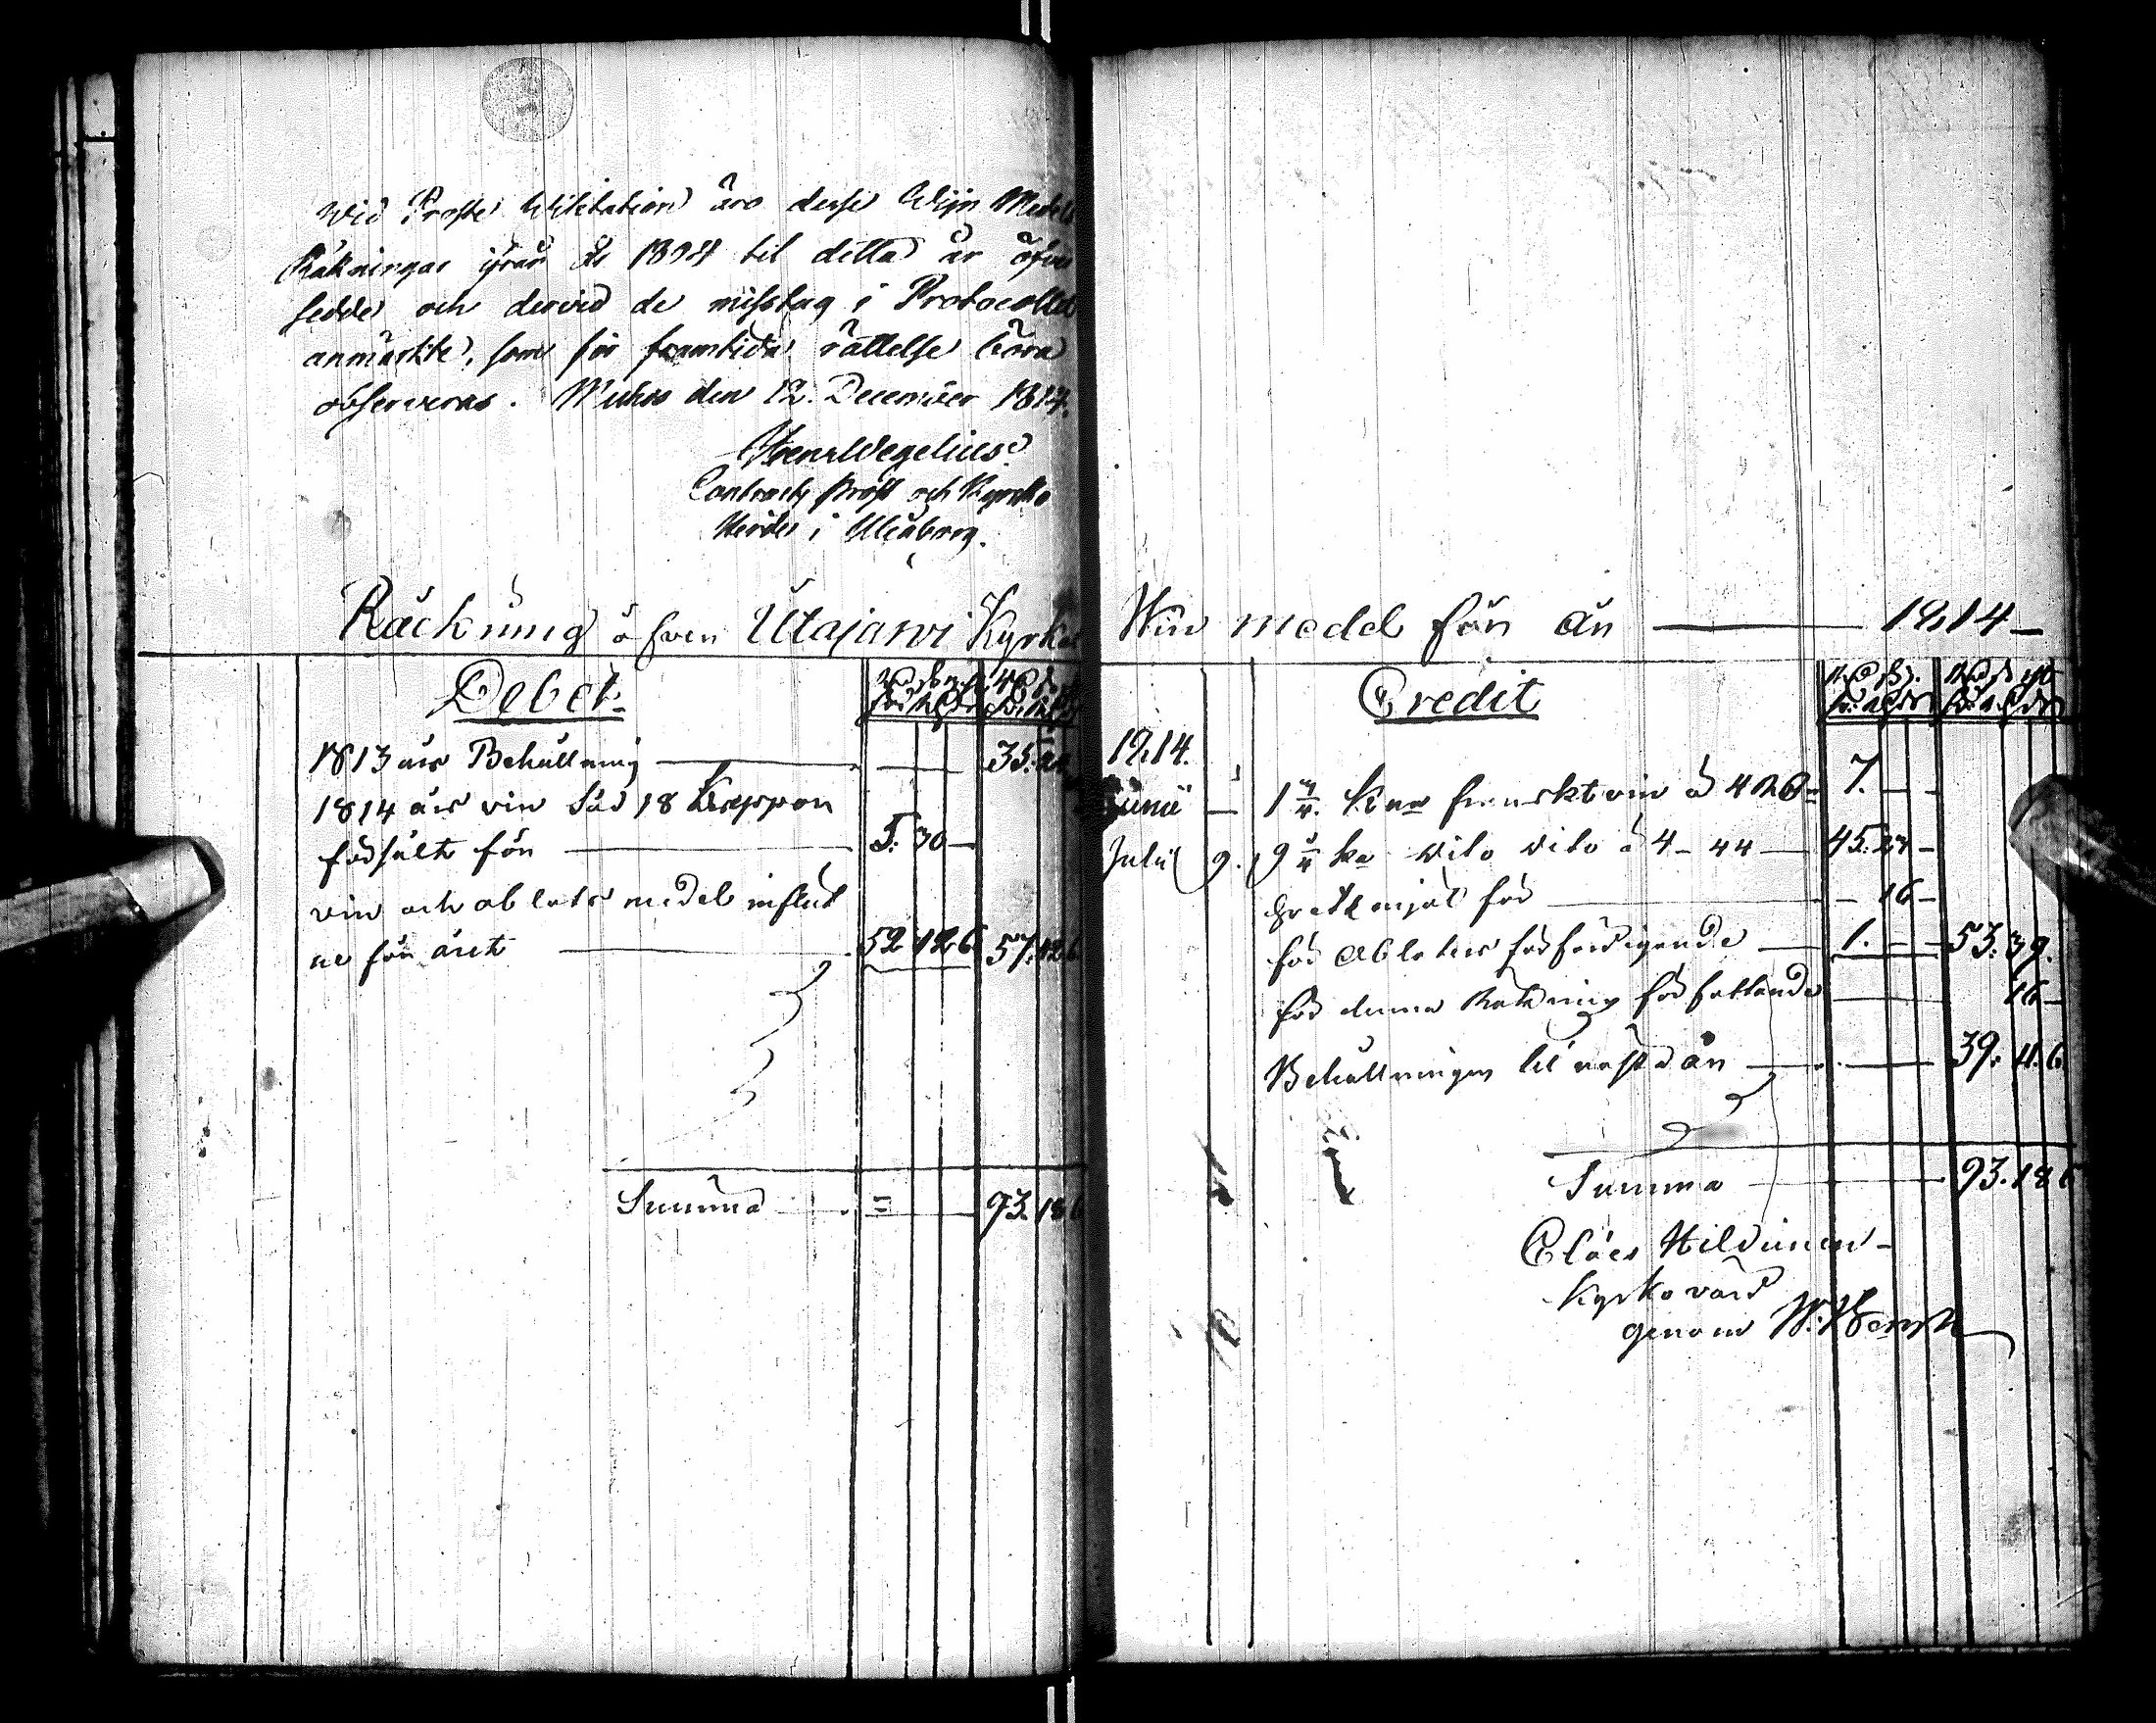 Wid Prosts Wisitation äro desse Wijn Medels
Räkningar ifrån år 1804 til detta år öfver
sedde och dervid de misstag i Protocollet
anmärkte, som för framtida rättelse böra
observeras. Muhos den 12. December 1814.
Wegelius
Contracts prost och Kyrko
Herde i Uleåborg.
Räckning öfver Utajärvi Kyrkas
Debet
1813 års Behållning 35.
1814 års vin Säd 18 Kappor
försålt för 5. 30 —
vin och oblats medel influt
ne för året 52 12 6 57. 42 6
Summa 93. 18 6
Win medel för År 1814 —
Credit
1814.
Junii 1 3/4 Kna franskt vin à 7. — —
Julii 9. 9 3/4 ka dito dito à 4 — 44 — 45. 23 —
för — 16 —
för Oblaters förfärdigande 1. — — 53. 39.
för denna Räkning författande 16 —
Behållningen til nästa år 39. 11. 6
Summa 93. 18 6
Claes Hildunen
Kyrkovärd
genom